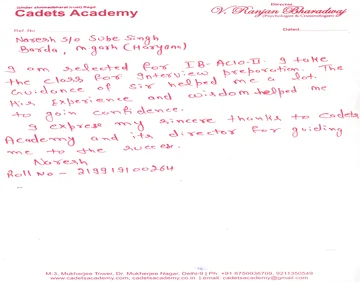 (Under Shamsherbahadur trust) Regd.
Cadets Academy
Director
V. Ranjan Bharadwaj
(Psychologist & Counsellor)
Ref. No.
Dated
Naresh s/o Sube Singh
Barda, M.garh (Haryana)
I am selected for IB-ACIO-II. I take
the class for Interview preparation. The
Guidance of Sir helped me a lot.
His Experience and wisdom helped me
to gain confidence.
I express my sincere thanks to Cadets
Academy and its director for guiding
me to the success.
Naresh
Roll No - 219919100264
M-3, Mukherjee Tower, Dr. Mukherjee Nagar, Delhi-9 | Ph: +91 8750936709, 9211350549
www.cadetsacademy.com, cadetsacademy.co.in | email: cadetsacademy@gmail.com